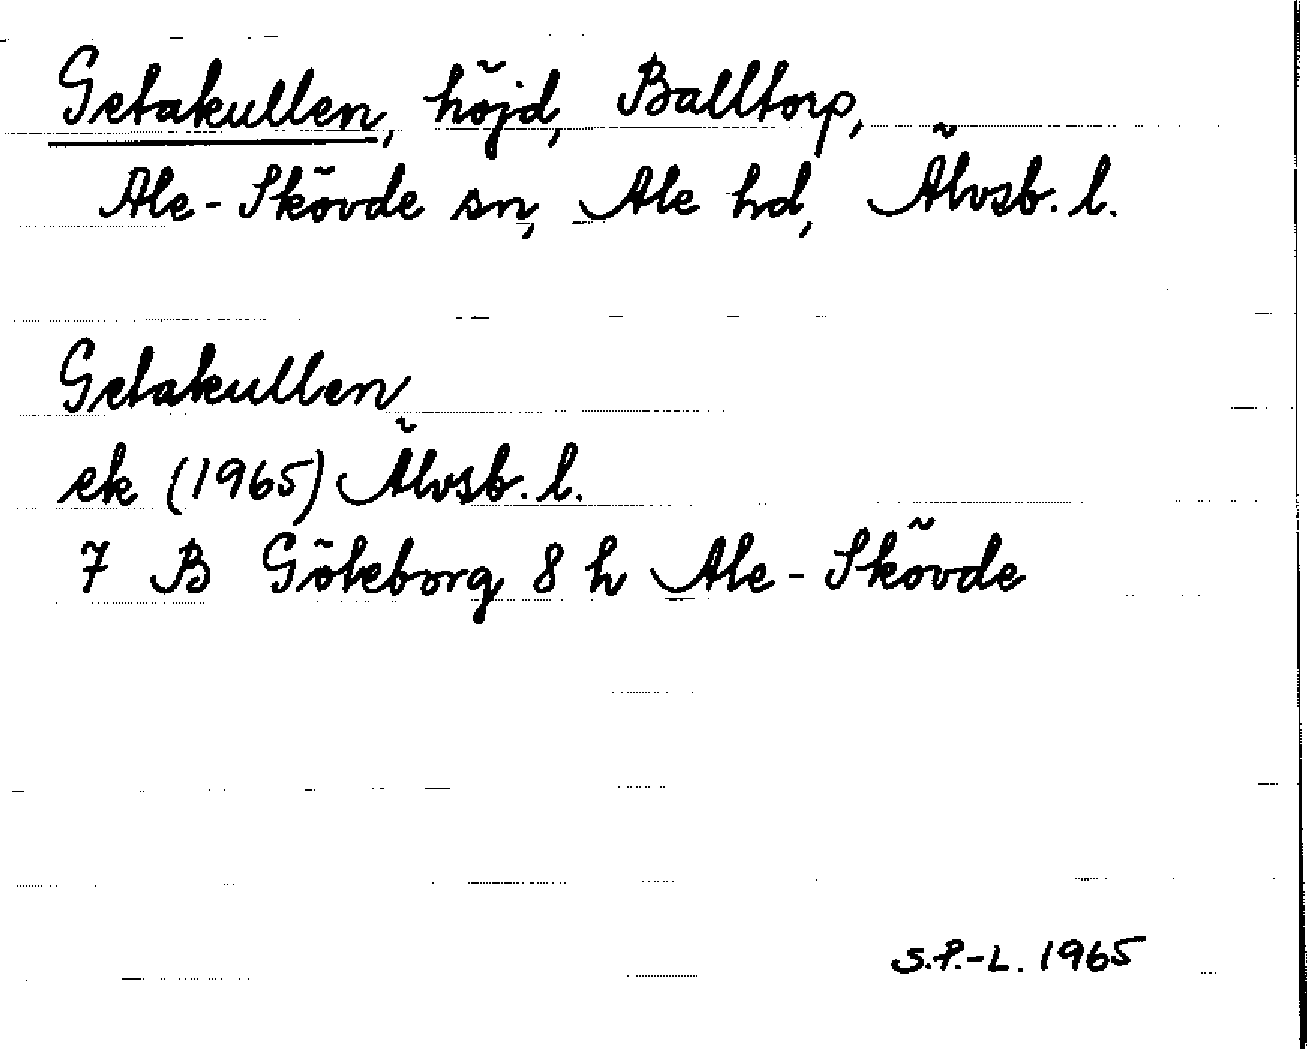 Getakullen, höjd, Balltorp,
Ale-Skövde sn, Ale hd, Älvsb. l.
Getakullen
ek (1965) Älvsb. l.
7 B Göteborg 8 h Ale-Skövde
S.P.-L. 1965